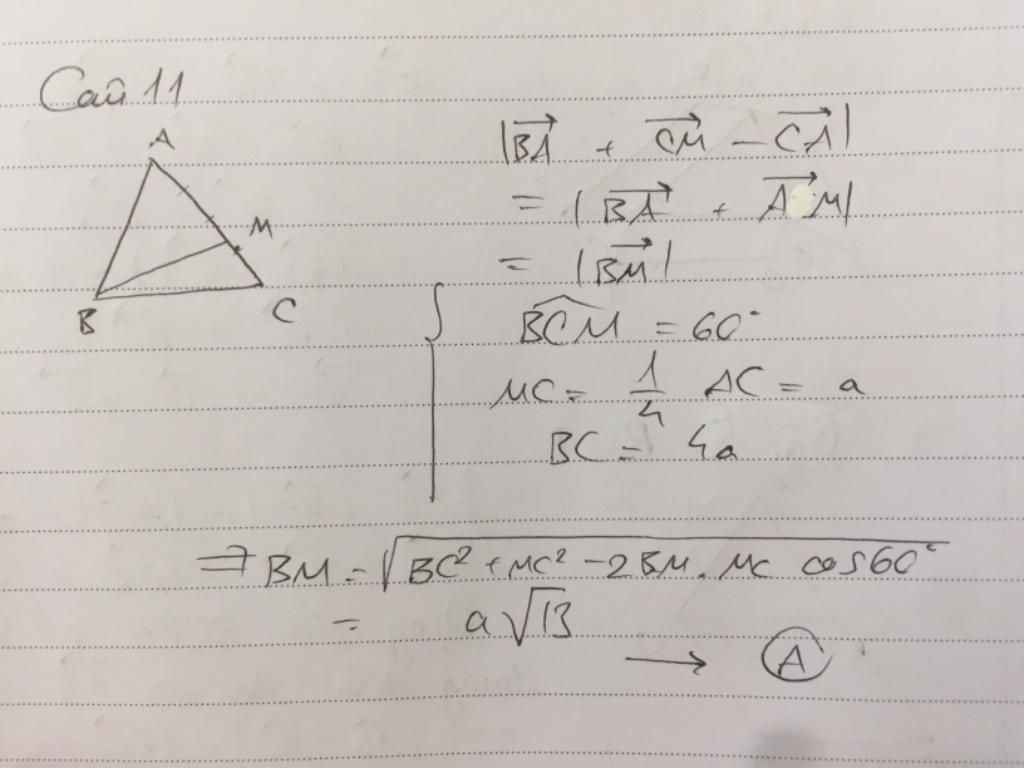 Câu 11
A
M
B
C
|\overrightarrow{BA} + \overrightarrow{CM} - \overrightarrow{CA}|
= |\overrightarrow{BA} + \overrightarrow{AM}|
= |\overrightarrow{BM}|
\widehat{BCM} = 60°
MC = \frac{1}{4} AC = a
BC = 4a
⇒ BM = \sqrt{BC² + MC² - 2BM. MC cos60°}
= a\sqrt{13}
→ A